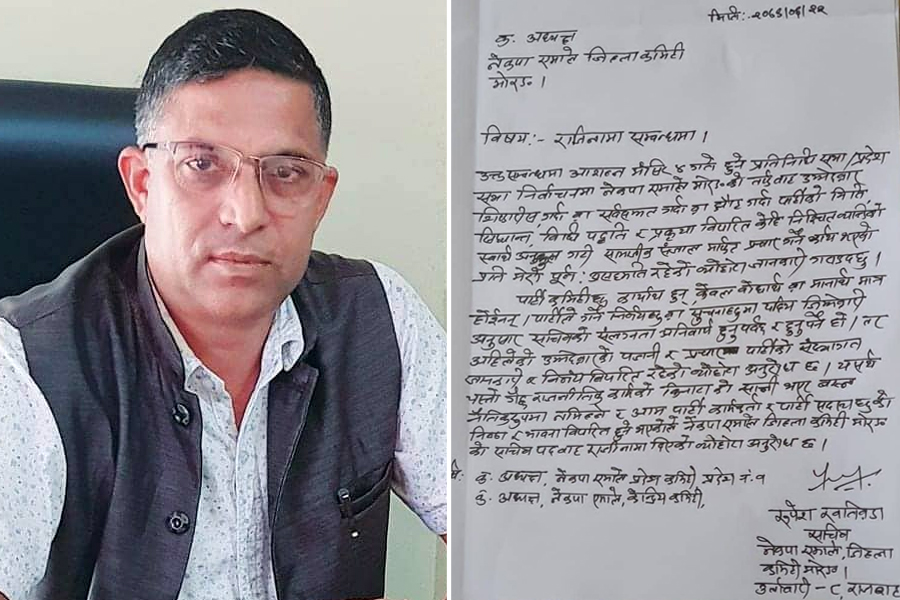 मिति:- २०७९/०६/२२
क. अध्यक्ष
नेकपा एमाले जिल्ला कमिटी
मोरङ ।
विषय:- राजिनामा सम्बन्धमा ।
उक्त सम्बन्धमा आसन्न मंसिर ४ गते हुने प्रतिनिधि सभा/प्रदेश
सभा निर्वाचनमा नेकपा एमाले मोरङको तर्फबाट उम्मेदवार
सिफारिस गर्दा वा सर्वसम्मत गर्दा वा छनौट गर्दा पार्टीको नीति
विधान, विधी पद्धति र प्रकृया विपरित केहि निश्चित व्यक्तिको
स्वार्थ अनुकुल गरी सामाजीक संजाल मार्फत प्रचार गर्ने कार्य भएको
प्रति मेरो पूर्ण असहमति रहेको व्यहोरा जानकारी गराउदछु ।
पार्टी कमिटीहरु कार्यार्थ हुन् केवल बोधार्थ वा मानार्थ मात्र
होईनन् । पार्टीले गर्ने निर्णयहरु वा सुचनाहरुमा पहिलो जिम्मेवारी
अनुसार सचिवको संलग्नता अनिवार्य हुनुपर्दछ र हुनुपर्ने हो । तर
अहिलेको उम्मेदवारको चयन र प्रचार पार्टीको संस्थागत
र निर्णय विपरित रहेको व्यहोरा अनुरोध छ ।
यस्तो राजनीतिक कार्यको किनारा को साक्षी भएर बस्न
नैतिकरुपमा नमिल्ने र आम पार्टी कार्यकर्ता र पार्टी सदस्यहरुको
निष्ठा र भावना विपरित हुने भएकोले नेकपा एमाले जिल्ला कमिटी मोरङ
को सचिव पदबाट राजीनामा दिएको व्यहोरा अनुरोध छ ।
क. अध्यक्ष, नेकपा एमाले प्रदेश कमिटी प्रदेश नं. १
क. अध्यक्ष, नेकपा एमाले, केन्द्रिय कमिटी,
रुपेश खतिवडा
सचिव
नेकपा एमाले, जिल्ला
कमिटी मोरङ ।
उर्लाबारी - ८, राजघाट